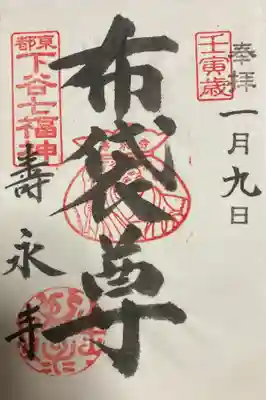 奉拝
一月九日
壬寅歳
布袋尊
東都
下谷七福神
壽永寺